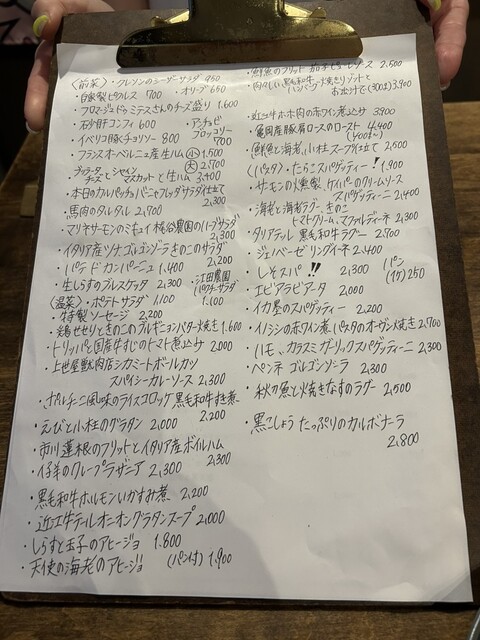 〈前菜〉・クレソンのシーザーサラダ 950
・自家製ピクルス 700 ・オリーブ 650
・フロマージュドゥミテスさんのチーズ盛り 1.600
・石砂肝コンフィ 600 ・アンチョビ
ブロッコリー
700
・イベリコ豚くチョリソー 800
・フランスオーベルニュ産生ハム 小 1,500
大 2,700
・ブッラータ
チーズとシャイン
マスカットと生ハム 3,400
・本日のカルパッチョバーニャフレッダサラダ仕立て
2,300
・馬肉のタルタル 2,700
・マリナサーモンのミキュイ 農園のハーブサラダ
2,300
・イタリア産ツナゴルゴンゾーラきのこのサラダ
2,200
・パテドカンパーニュ 1,400
・生しらすのブレスケッタ 2,300
・江田農園
パクチーサラダ
1,100
〈温菜〉・ポテトサラダ 1,100
・特製ソーセージ 2,200
・鶏せせりときのこのブルギニョンバター焼き 1,600
・トリッパと国産牛すじのトマト煮込み 2,000
・上世屋獣肉店シカミートボールカツ
スパイシーカレーソース 2,300
・ナポレターナ風味のライスコロッケ 黒毛和牛すき煮
2,200
・えびと小柱のグラタン 2,000
・市川蓮根のフリットとイタリア産ボイルハム
2,300
・仔羊のクレープラザニア 2,300
・黒毛和牛ホルモンいかすみ煮 2,200
・近江牛テールオニオングラタンスープ 2,000
・しらすと玉子のアヒージョ 1.800
・天使の海老のアヒージョ (パン付) 1,900
・鮮魚のフリット 茄子ピューレソース 2,500
・肉々しい黒毛和牛
ハンバーグ 焼きリゾットと
3,900
・近江牛ホホ肉の赤ワイン煮込み 3,900
・亀岡産豚肩ロースのロースト 4,400
(400g〜)
・鮮魚と海老、小柱スープ仕立て 2,500
〈パスタ〉・たらこスパゲッティー! 1,900
・サーモンの燻製、ケイパーのクリームソース
スパゲッティーニ 2,400
・海老と海老ラグー、きのこ
トマトクリーム、マファルディーネ 2,300
・タリアテッレ 黒毛和牛ラグー 2,700
・ジェノベーゼ リングイネ 2,400
・しそスパ!! 2,300
(パン
(1ケ) 250
・エビアラビアータ 2,000
・イカ墨のスパゲッティー 2,200
・イノシシの赤ワイン煮パスタのオーブン焼き 2,700
・ハモ、カラスミガーリックスパゲッティーニ 2,300
・ペンネ ゴルゴンゾーラ 2,300
・秋刀魚と焼きなすのラグー 2,500
・黒こしょう たっぷりのカルボナーラ
2,800